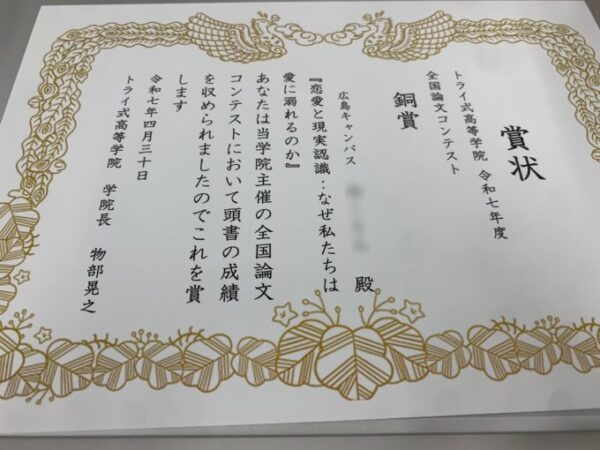 賞状
トライ式高等学院 令和七年度
全国論文コンテスト
銅賞
広島キャンパス 殿
『恋愛と現実認識：なぜ私たちは
愛に溺れるのか』
あなたは当学院主催の全国論文
コンテストにおいて頭書の成績
を収められましたのでこれを賞
します
令和七年四月三十日
トライ式高等学院 学院長 物部晃之